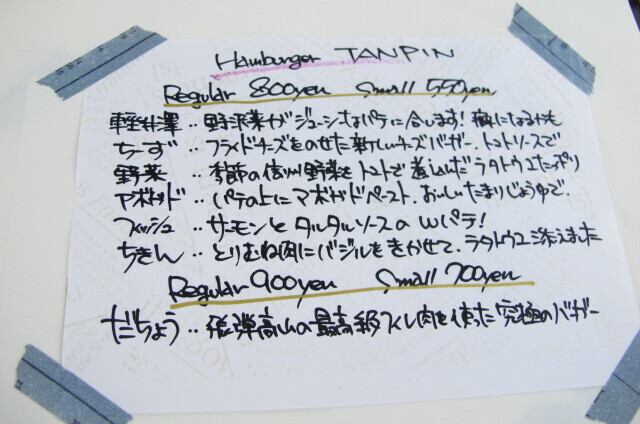 Hamburger TANPIN
Regular 800yen Small 550yen
軽井澤‥野沢菜がジューシーなパテに合います! 癖になるかも
ちーず‥フライドチーズをのせた新しいチーズバガー、トマトソースで
野菜‥季節の信州野菜をトマトで煮込んだラタトゥユたっぷり
アボガド‥パテの上にアボガドペースト、おいしいたまりじょうゆで、
フィッシュ‥サーモンとタルタルソースのWパテ!
ちきん‥とりむね肉にバジルをきかせて、ラタトゥユ添えました
Regular 900yen Small 700yen
だちょう‥飛弾高山の最高級フィレ肉を使った究極のバガー